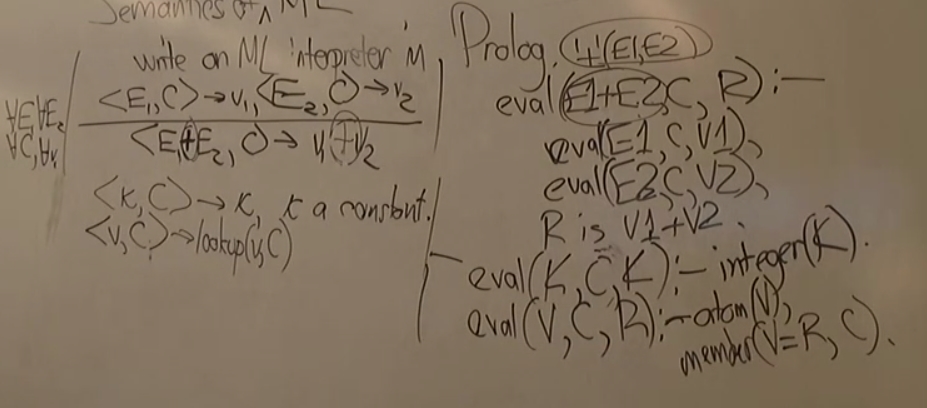 Semantics of ML
write an ML interpreter in Prolog.
∀E₁∀E₂
∀C,∀v₁
<E₁,C>→v₁,<E₂,C>→v₂
<E₁+E₂,C>→ v₁+v₂
<K,C>→K, K a constant.
<v,C>→lookup(v,C)
'+'(E1,E2)
eval(E1+E2,C,R):-
eval(E1,C,V1),
eval(E2,C,V2),
R is V1+V2.
eval(K,C,K):- integer(K).
eval(V,C,R):-atom(V),
member(V=R,C).